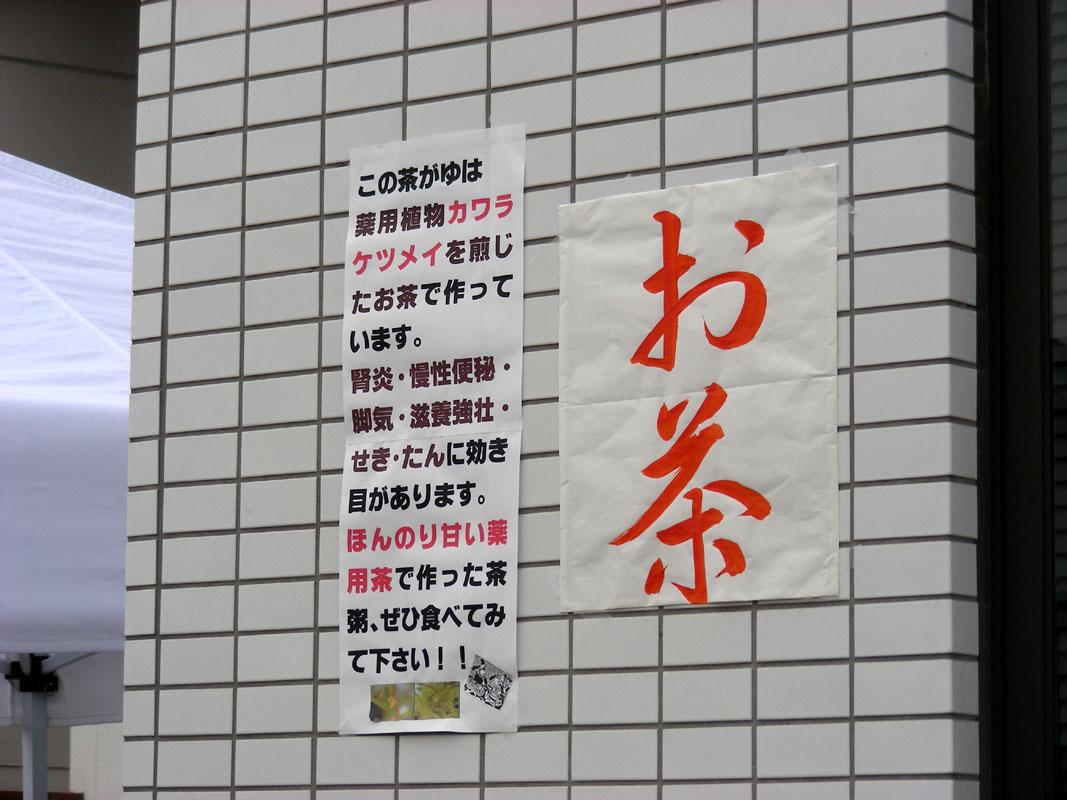 この茶がゆは
薬用植物カワラ
ケツメイを煎じ
たお茶で作って
います。
腎炎・慢性便秘・
脚気・滋養強壮・
せき・たんに効き
目があります。
ほんのり甘い薬
用茶で作った茶
粥、ぜひ食べてみ
て下さい！！
お茶